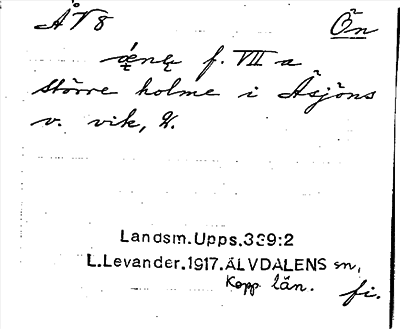 ÅV 8 Ön
f. VII a
större holme i Åsjöns
v. vik, U.
Landsm.Upps.339:2
L.Levander.1917.ÄLVDALENS sn,
Kopp. län.
fi.